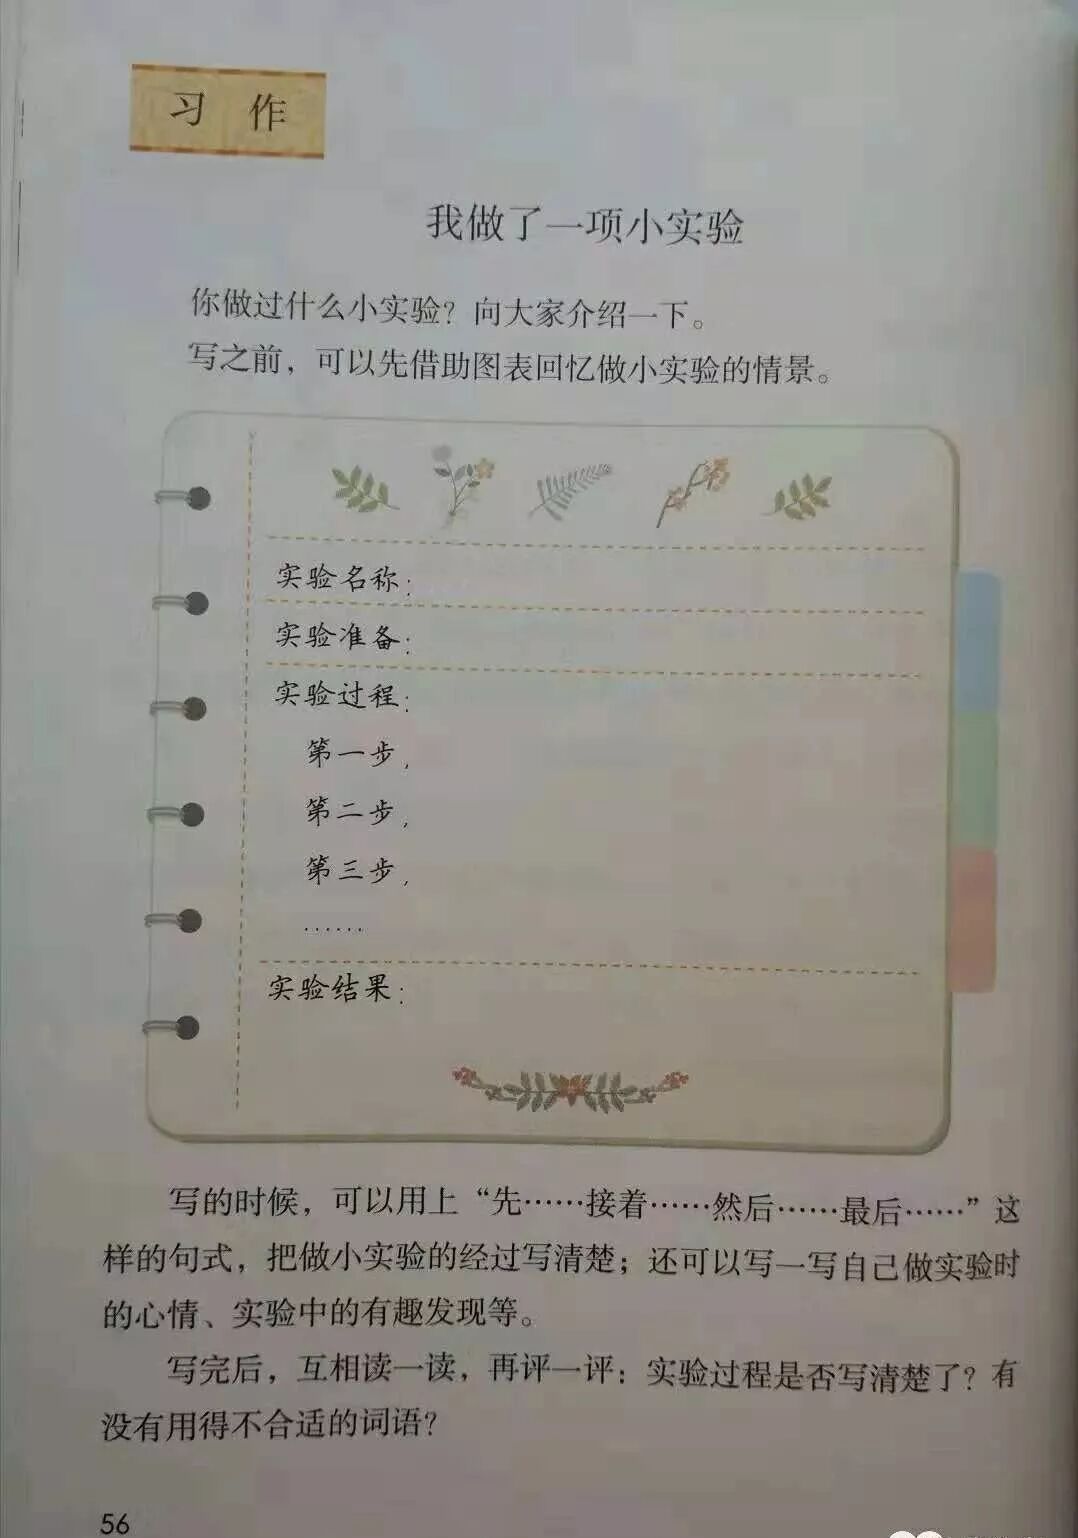 习 作
我做了一项小实验
你做过什么小实验？向大家介绍一下。
写之前，可以先借助图表回忆做小实验的情景。
实验名称：
实验准备：
实验过程：
第一步，
第二步，
第三步，
……
实验结果：
写的时候，可以用上“先……接着……然后……最后……”这
样的句式，把做小实验的经过写清楚；还可以写一写自己做实验时
的心情、实验中的有趣发现等。
写完后，互相读一读，再评一评：实验过程是否写清楚了？有
没有用得不合适的词语？
56